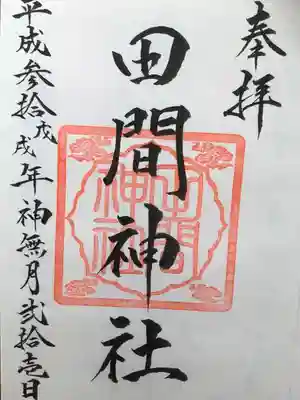 奉拝
田間神社
田間神社
平成参拾戊戌年神無月弐拾壱日